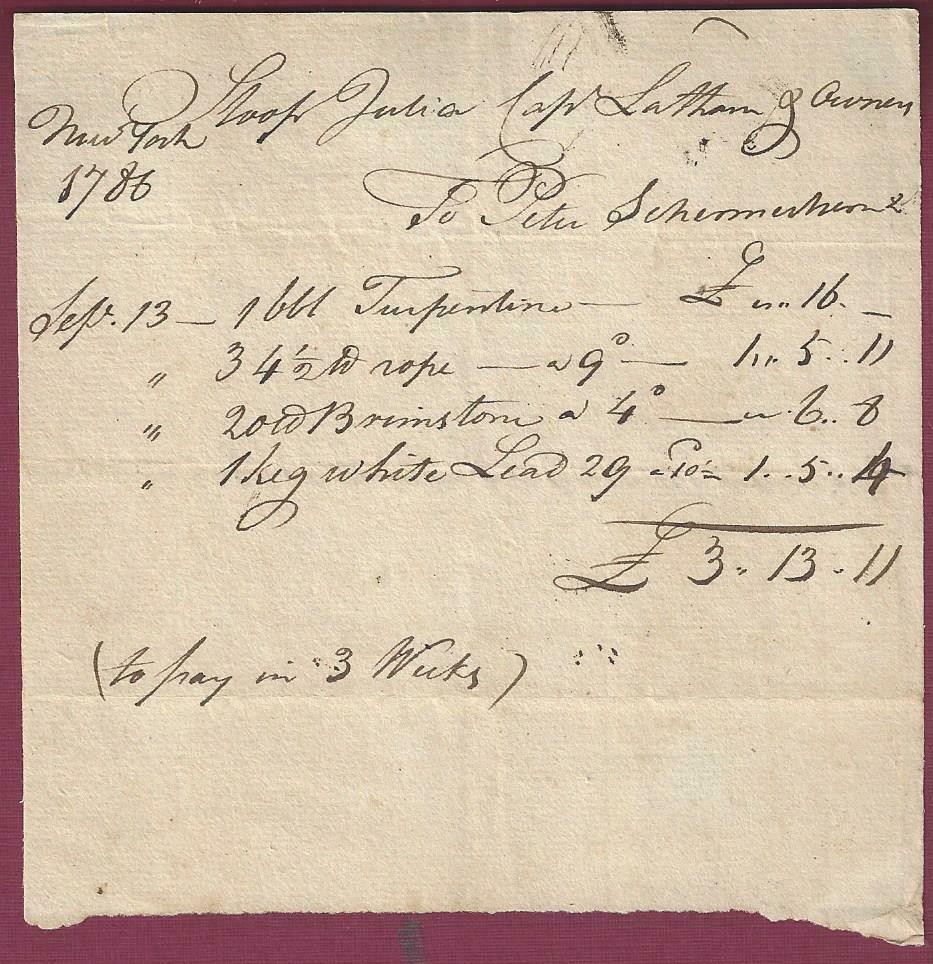 Sloop Julia Capt Latham & Owners
New York
1786
To Peter Schermerhorn
Sepr. 13 — 1 bbl Turpentine — £ „ .. 16 . —
„ 34½ lb rope — a 9d — 1 .. 5 .. 11
„ 20 lb Brimstone a 4d — „ . 6 .. 8
„ 1 keg white Lead 29 1 .. 5 .. 4
£ 3 . 13 . 11
(to pay in 3 Weeks)